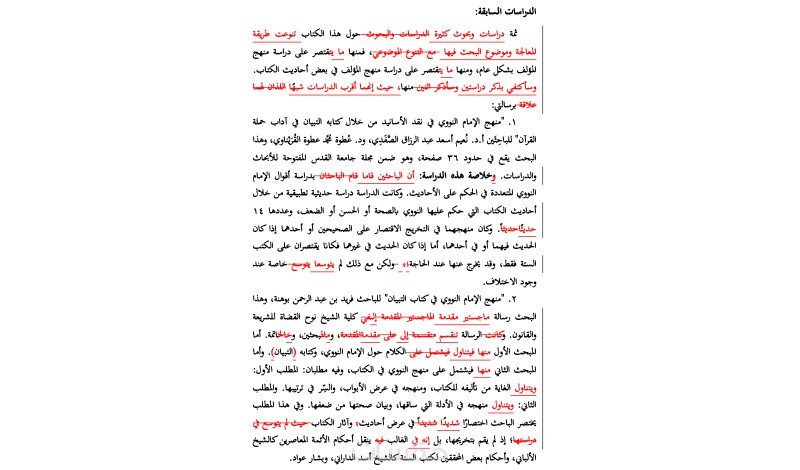 الدراسات السابقة:
ثمة دراسات وبحوث كثيرة الدراسات والبحوث حول هذا الكتاب تنوعت طريقة
المعالجة وموضوع البحث فيها مع التنوع الموضوعي، فمنها ما يقتصر على دراسة منهج
المؤلف بشكل عام، ومنها ما يقتصر على دراسة منهج المؤلف في بعض أحاديث الكتاب.
وسأكتفي بذكر دراستين وسأذكر اثنين منها، حيث إنهما أقرب الدراسات شبهًا اللذان لهما
علاقة برسالتي:
١. "منهج الإمام النووي في نقد الأسانيد من خلال كتابه التبيان في آداب حملة
القرآن" للباحثَين أ.د. نُعيم أسعد عبد الرزاق الصَّفَدِي، ود. عُطوة محمَّد عطوة القُرَيْناوي، وهذا
البحث يقع في حدود ٣٦ صفحة، وهو ضمن مجلة جامعة القدس المفتوحة للأبحاث
والدراسات. وخلاصة هذه الدراسة: أن الباحثين قاما قام الباحثان بدراسة أقوال الإمام
النووي المتعددة في الحكم على الأحاديث. وكانت الدراسة دراسة حديثية تطبيقية من خلال
أحاديث الكتاب التي حكم عليها النووي بالصحة أو الحسن أو الضعف، وعددها ١٤
حديثًاحديثاً. وكان منهجهما في التخريج الاقتصار على الصحيحين أو أحدهما إذا كان
الحديث فيهما أو في أحدهما، أما إذا كان الحديث في غيرهما فكانا يقتصران على الكتب
الستة فقط، وقد يخرج عنها عند الحاجة، ولكن مع ذلك لم يتوسعا يتوسع خاصة عند
وجود الاختلاف.
٢. "منهج الإمام النووي في كتاب التبيان" للباحث فريد بن عبد الرحمن بوهنة، وهذا
البحث رسالة ماجستير مقدمة الماجستير المقدمة إلى كلية الشيخ نوح القضاة للشريعة
والقانون. وكانت الرسالة تنقسم منقسمة إلى على مقدمةالمقدمة، ومبحثين، وخاتمة. أما
المبحث الأول منها فيتناول فيشتمل على الكلام حول الإمام النووي، وكتابه (التبيان). وأما
المبحث الثاني منها فيشتمل على منهج النووي في الكتاب، وفيه مطلبان: المطلب الأول:
ويتناول الغاية من تأليفه للكتاب، ومنهجه في عرض الأبواب، والسِّر في ترتيبها. والمطلب
الثاني: ويتناول منهجه في الأدلة التي ساقها، وبيان صحتها من ضعفها. وفي هذا المطلب
يختصر الباحث اختصارًا شديدًا شديداً في عرض أحاديث، وآثار الكتاب حيث لم يتوسع في
دراستها؛ إذ لم يقم بتخريجها، بل إنه في الغالب فيه ينقل أحكام الأئمة المعاصرين كالشيخ
الألباني، وأحكام بعض المحققين لكتب السنة كالشيخ أسد الداراني، وبشار عواد.